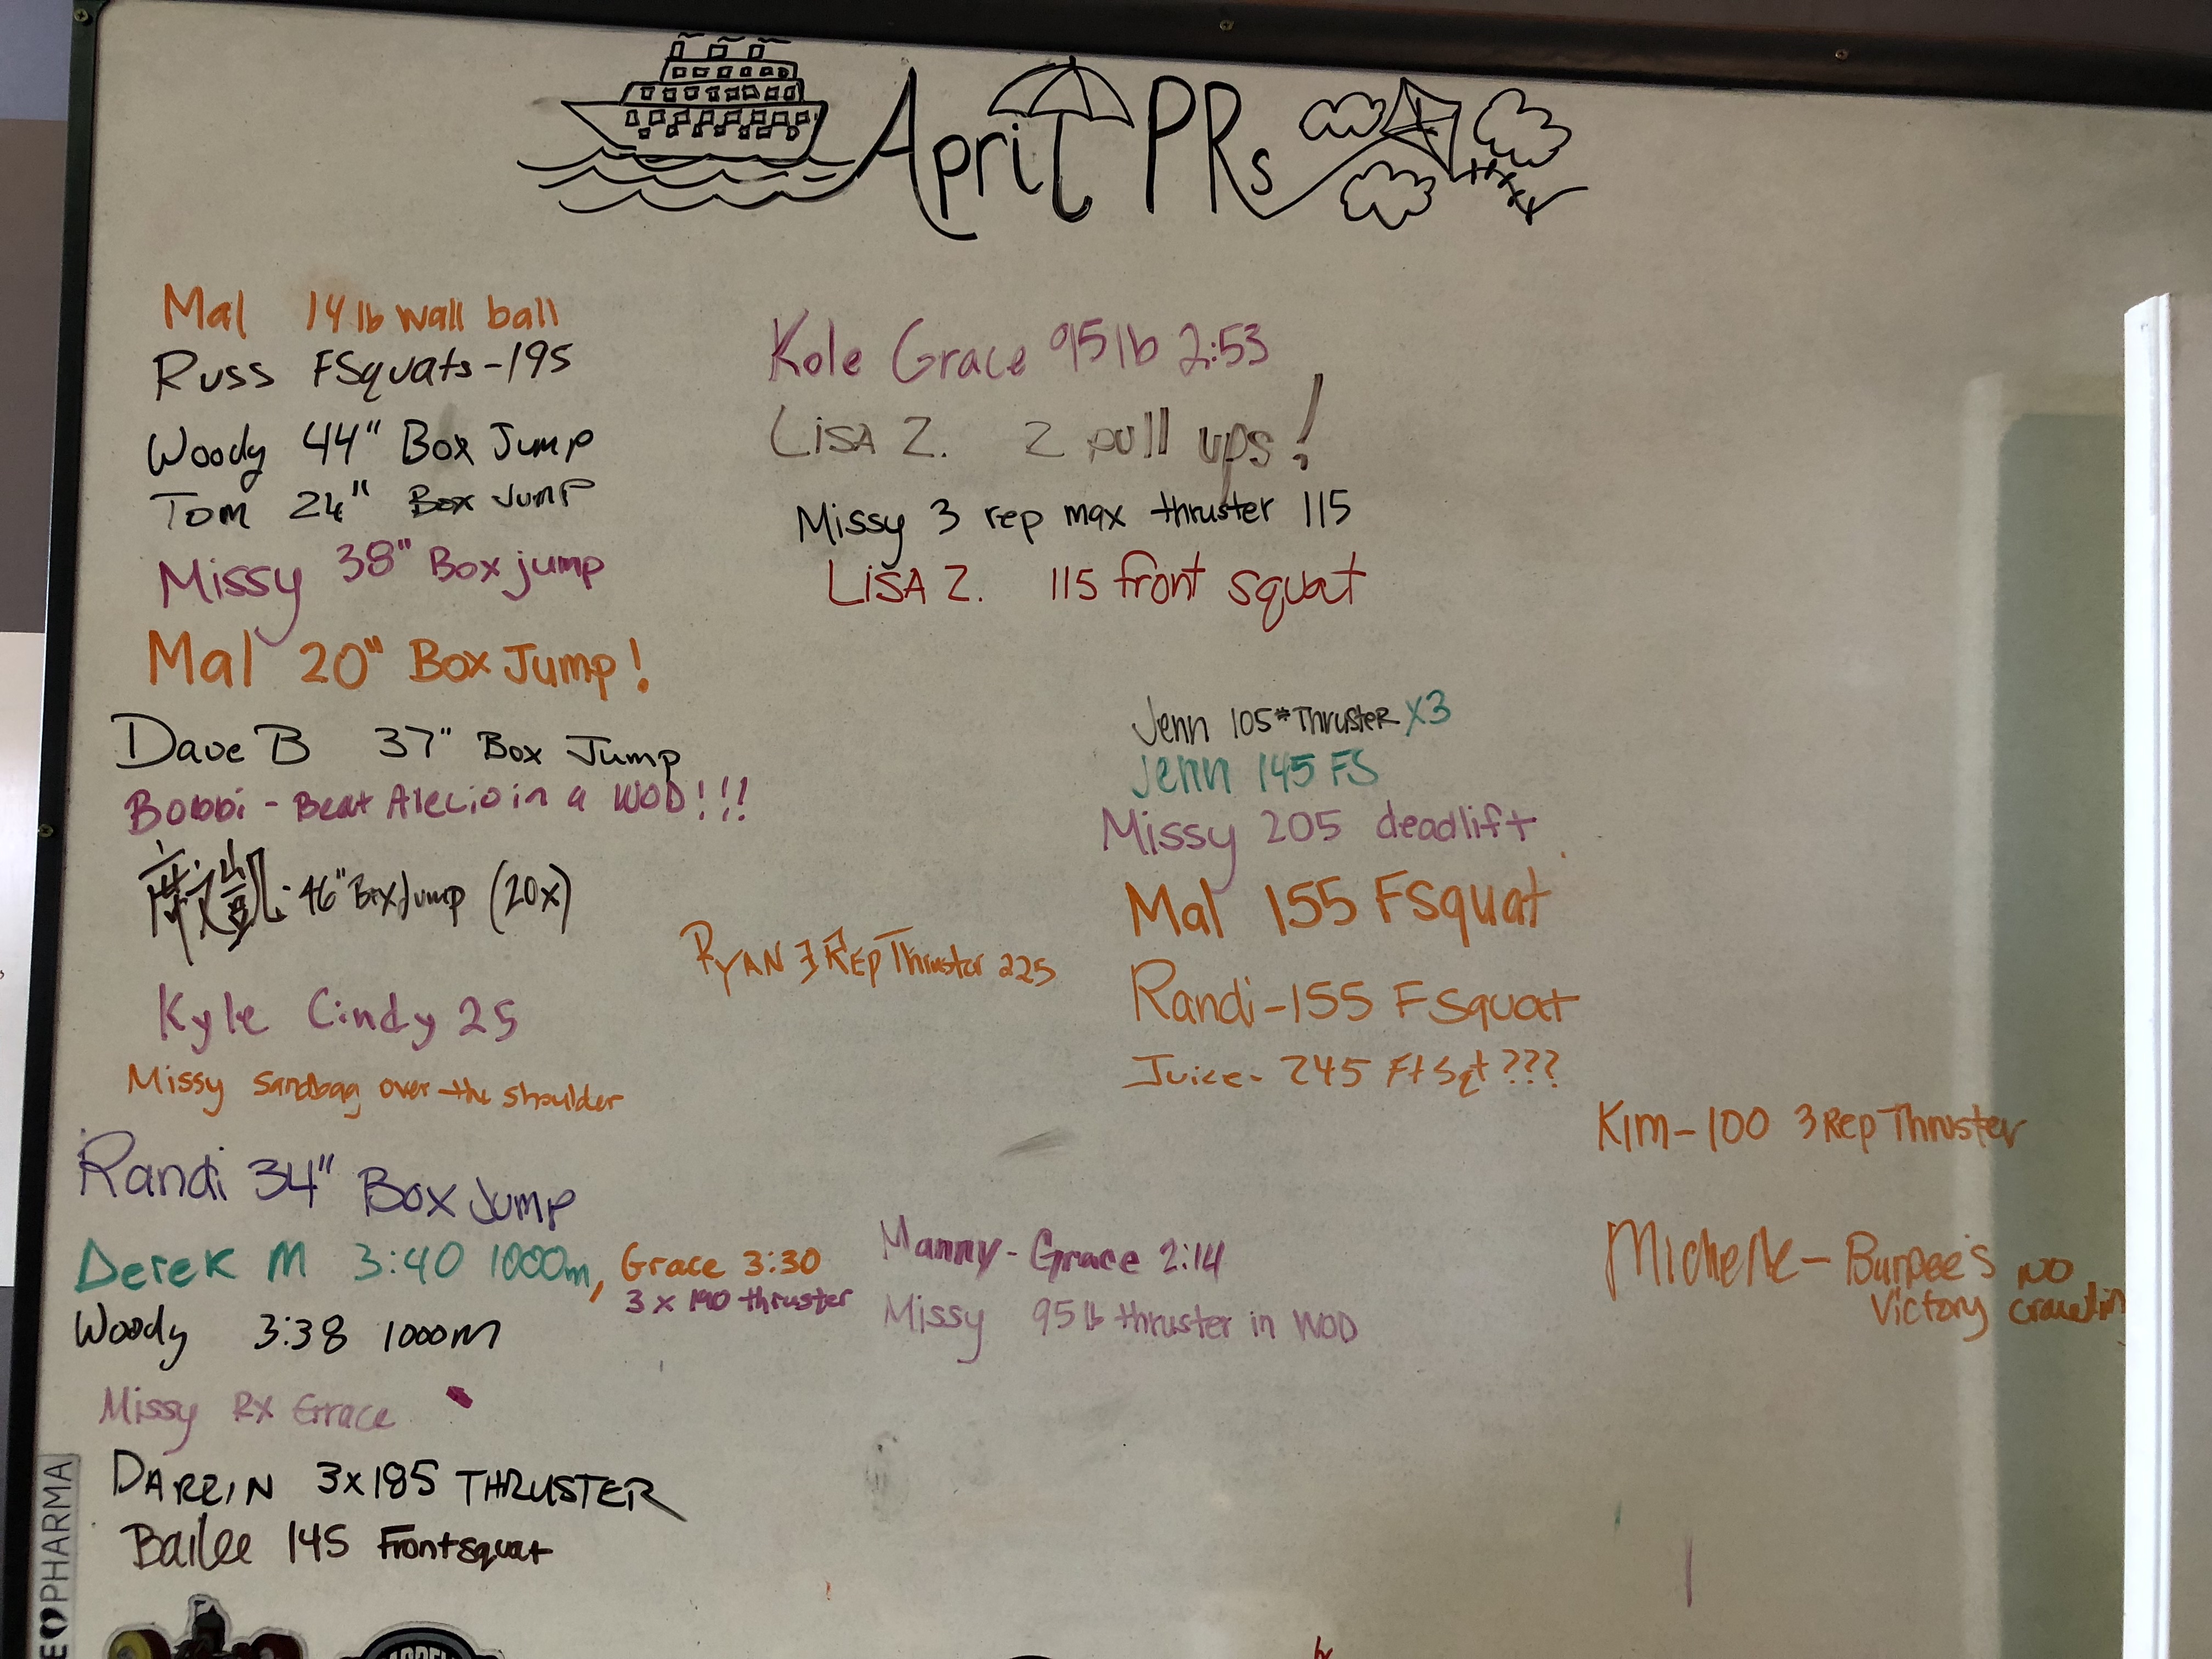 April PRs
Mal 14 lb wall ball
Russ FSquats-195
Woody 44" Box Jump
Tom 24" Box Jump
Missy 38" Box jump
Mal 20" Box Jump!
Dave B 37" Box Jump
Bobbi - Beat Alecio in a WOD!!!
凱: 46" Box Jump (20x)
Kyle Cindy 25
Missy Sandbag over-the shoulder
Randi 34" Box Jump
Derek M 3:40 1000m, Grace 3:30
3 x 190 thruster
Woody 3:38 1000m
Missy RX Grace
DARRIN 3x185 THRUSTER
Bailee 145 Frontsquat
Kole Grace 95 lb 2:53
LiSA Z. 2 pull ups!
Missy 3 rep max thruster 115
LiSA Z. 115 front squat
Jenn 105# Thruster X3
Jenn 145 FS
Missy 205 deadlift
Mal 155 FSquat
Randi-155 FSquat
Juice- 245 Ft Sqt???
RYAN 3 REP Thruster 225
Manny- Grace 2:14
Missy 95 lb thruster in WOD
Kim-100 3 Rep Thruster
Michelle- Burpee's NO
Victory crawlin
PHARMA